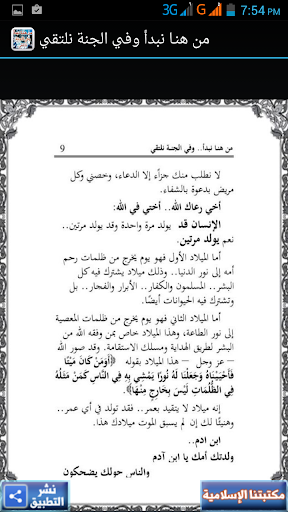 3G G 7:54 PM
من هنا نبدأ وفي الجنة نلتقي
من هنا نبدأ.. وفي الجنة نلتقي
9
لا نطلب منك جزاءً إلا الدعاء، وخصني وكل
مريض بدعوة بالشفاء.
أخي رعاك الله.. أختي في الله:
الإنسان قد يولد مرة واحدة وقد يولد مرتين..
نعم يولد مرتين.
أما الميلاد الأول فهو يوم يخرج من ظلمات رحم
أمه إلى نور الدنيا.. وذلك ميلاد يشترك فيه كل
البشر.. المسلمون والكفار.. الأبرار والفجار.. بل
وتشترك فيه الحيوانات أيضًا.
أما الميلاد الثاني فهو يوم يخرج من ظلمات المعصية
إلى نور الطاعة، وهذا الميلاد خاص بمن وفقه الله من
البشر لطريق الهداية ومسلك الاستقامة. وقد صور الله
– عز وجل – هذا الميلاد بقوله ﴿أَوَمَنْ كَانَ مَيْتًا
فَأَحْيَيْنَاهُ وَجَعَلْنَا لَهُ نُورًا يَمْشِي بِهِ فِي النَّاسِ كَمَنْ مَثَلُهُ
فِي الظُّلُمَاتِ لَيْسَ بِخَارِجٍ مِنْهَا﴾.
إنه ميلاد لا يتقيد بعمر.. فقد تولد في أي عمر..
وهنيئًا لك إن لم يسبق الموت ميلادك هذا.
ابن آدم..
ولدتك أمك يا ابن آدم
والناس حولك يضحكون
مكتبتنا الإسلامية
نشر
التطبيق